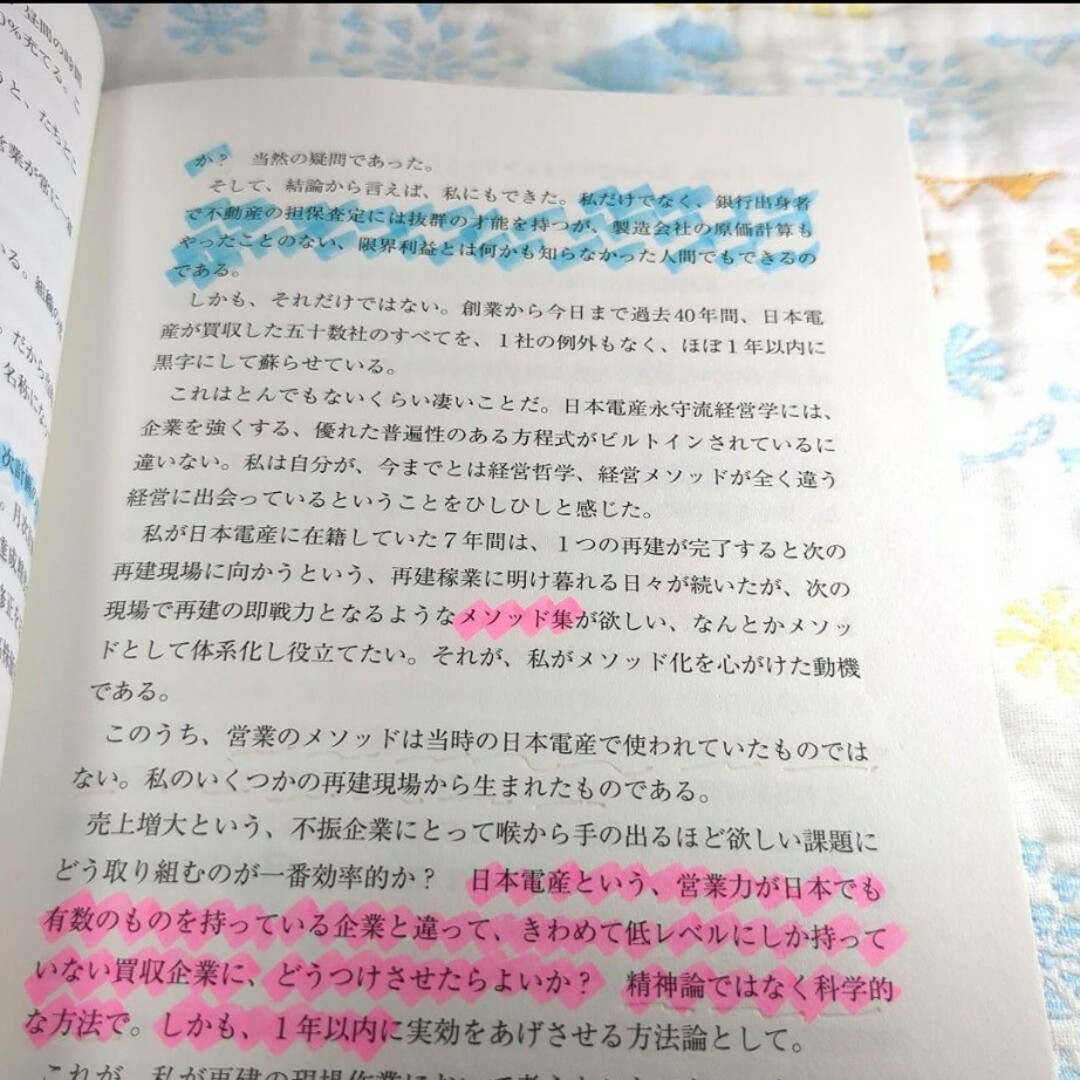 か？　当然の疑問であった。
そして、結論から言えば、私にもできた。私だけでなく、銀行出身者
で不動産の担保査定には抜群の才能を持つが、製造会社の原価計算も
やったことのない、限界利益とは何かも知らなかった人間でもできるの
である。
しかも、それだけではない。創業から今日まで過去40年間、日本電
産が買収した五十数社のすべてを、１社の例外もなく、ほぼ１年以内に
黒字にして蘇らせている。
これはとんでもないくらい凄いことだ。日本電産永守流経営学には、
企業を強くする、優れた普遍性のある方程式がビルトインされているに
違いない。私は自分が、今までとは経営哲学、経営メソッドが全く違う
経営に出会っているということをひしひしと感じた。
私が日本電産に在籍していた７年間は、１つの再建が完了すると次の
再建現場に向かうという、再建稼業に明け暮れる日々が続いたが、次の
現場で再建の即戦力となるようなメソッド集が欲しい、なんとかメソッ
ドとして体系化し役立てたい。それが、私がメソッド化を心がけた動機
である。
このうち、営業のメソッドは当時の日本電産で使われていたものでは
ない。私のいくつかの再建現場から生まれたものである。
売上増大という、不振企業にとって喉から手の出るほど欲しい課題に
どう取り組むのが一番効率的か？　日本電産という、営業力が日本でも
有数のものを持っている企業と違って、きわめて低レベルにしか持って
いない買収企業に、どうつけさせたらよいか？　精神論ではなく科学的
な方法で。しかも、１年以内に実効をあげさせる方法論として。
これが、私が再建の現場